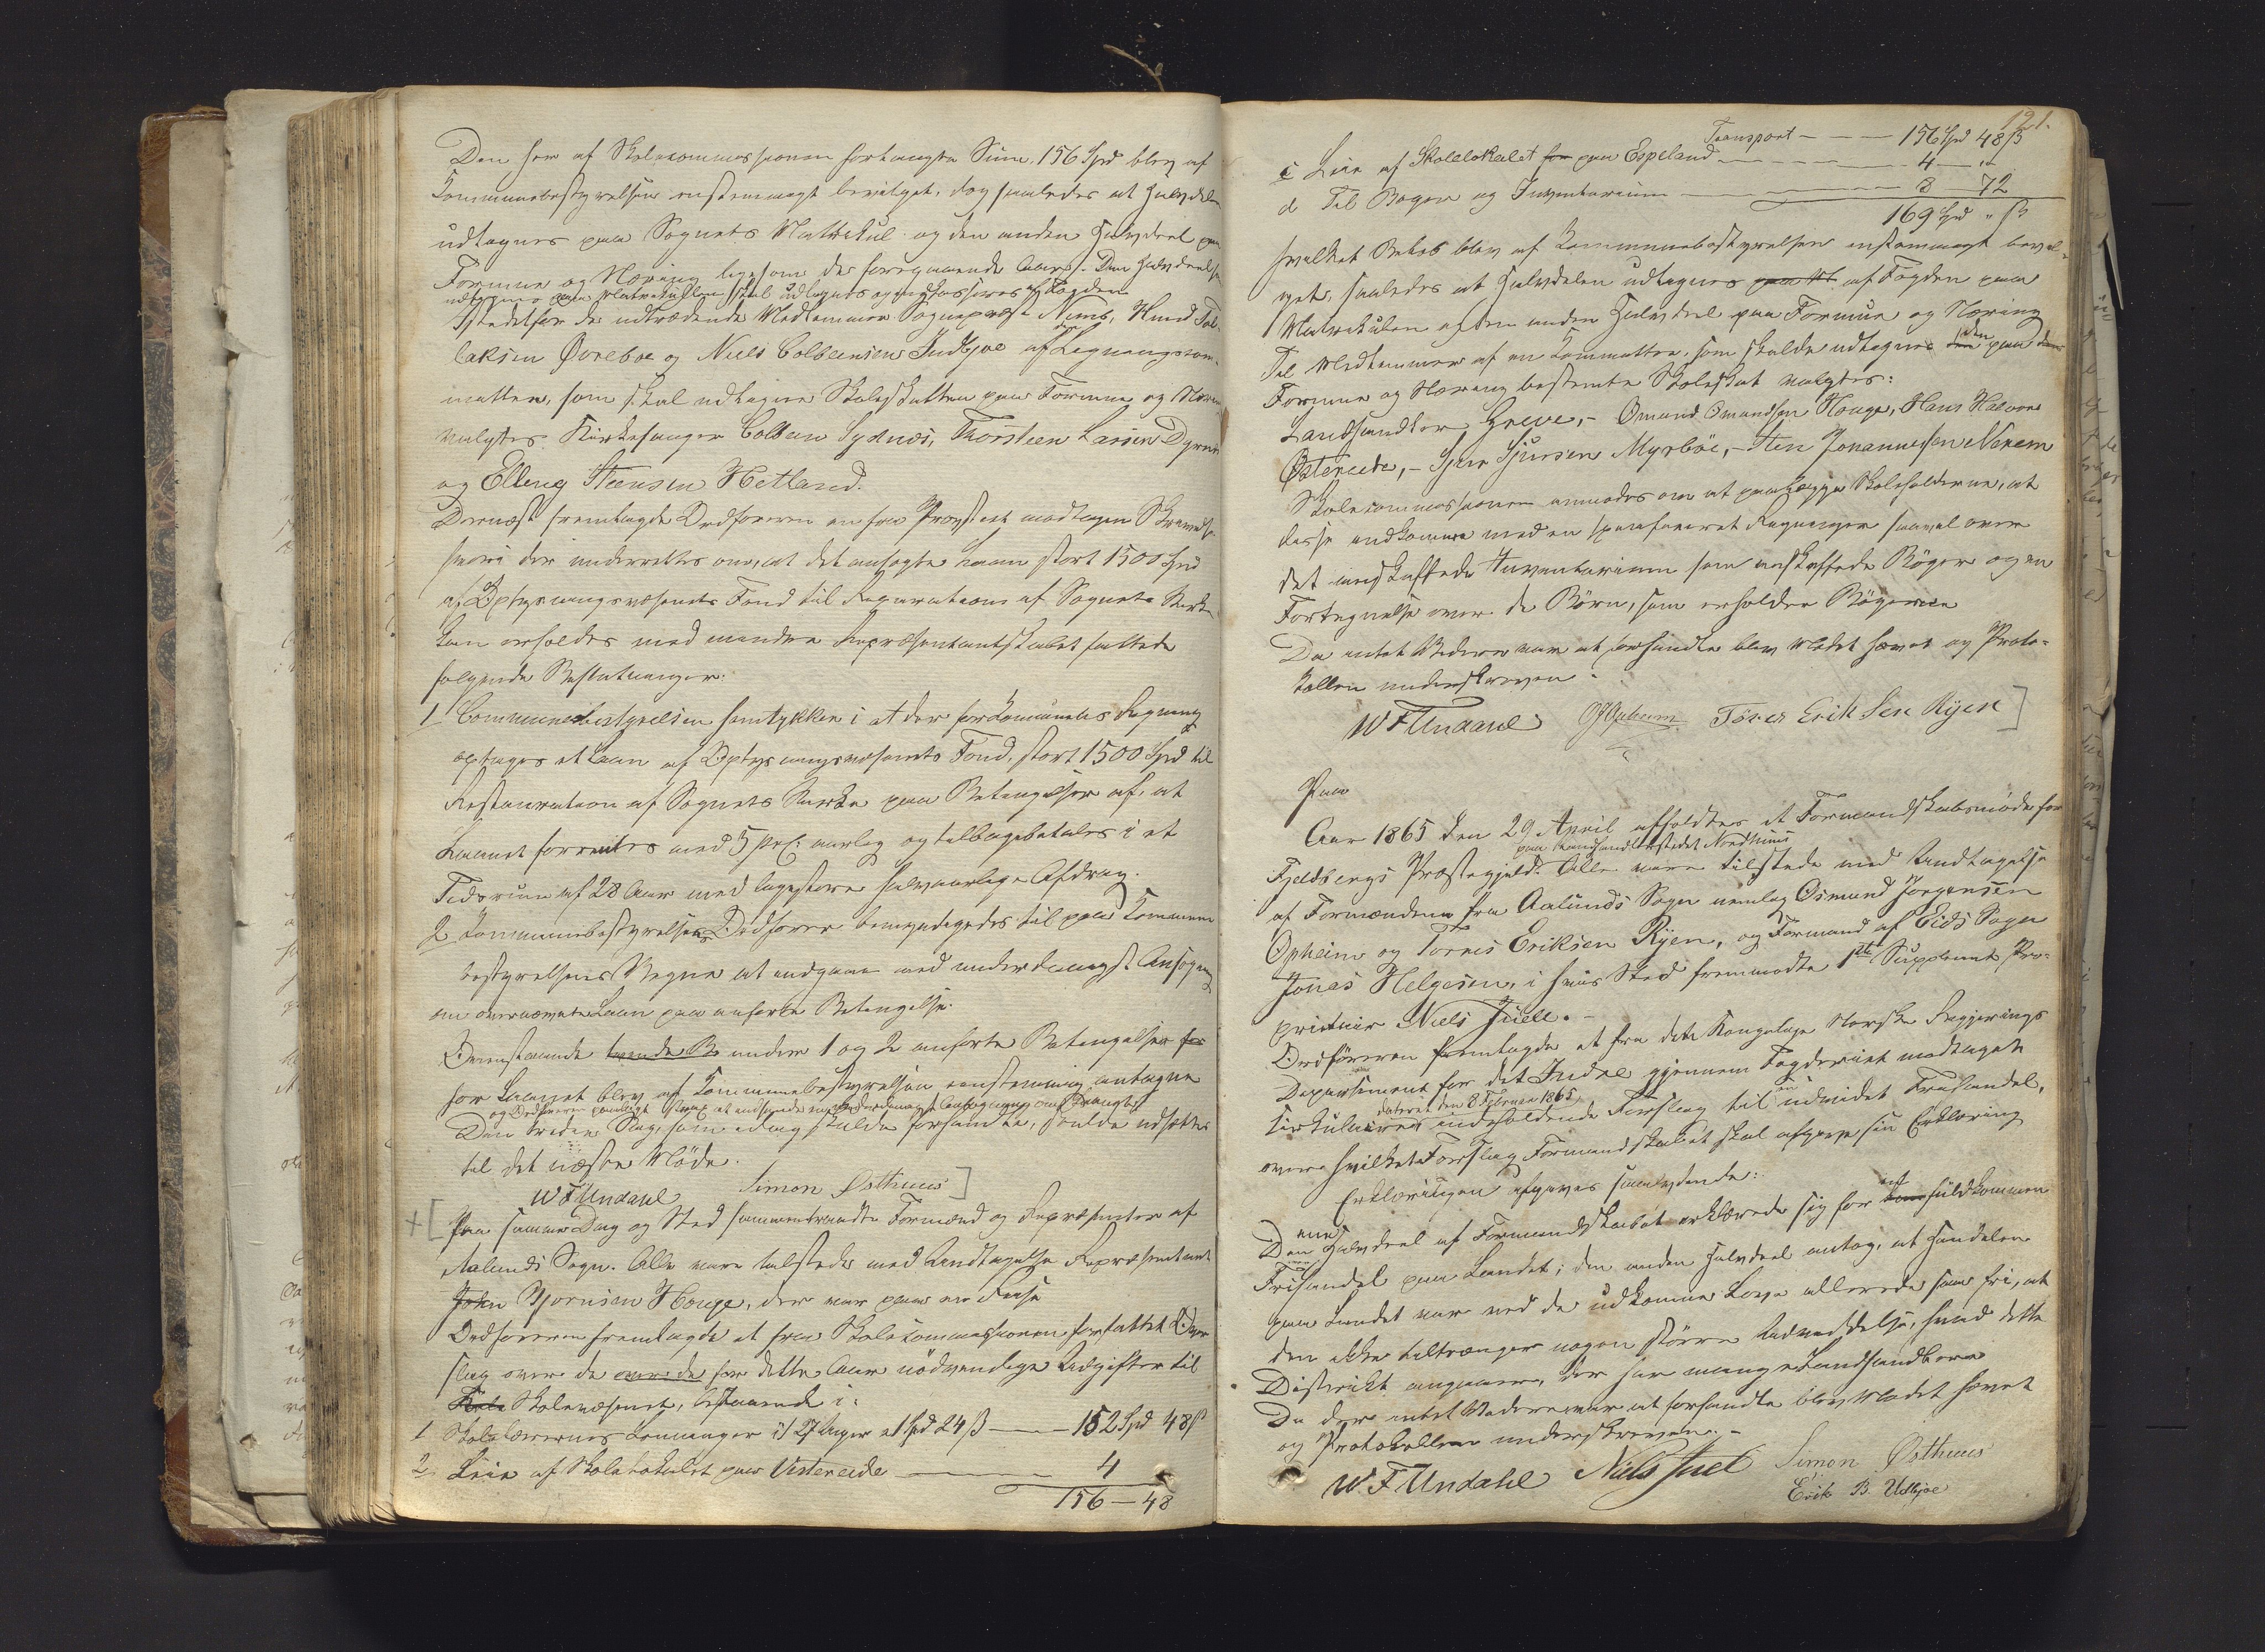 Den her af Skolecommissionen forlangte Sum, 156 Spd blev af
Kommunebestyrelsen enstemmigt bevilget, dog saaledes at Halvdelen
udtages paa Sognets Matrikul og den anden Halvdeel paa
Formue og Næring ligesom de foregaaende Aar. Den Halvdeel som
udtages paa Matrikullen skal udtages og indkasseres af Fogden
Istedetfor de udtrædende Medlemmer Sognepræst Nims, Knud Tol-
laksen Øvreboe og Niels Colbeensen Indbjoe af Ligningscom-
mitteen, som skal udligne Skoleskatten paa Formue og Næring
valgtes Kirkesanger Colbein Sydnæs, Thorsteen Larsen Dyrnæs
og Elling Steensen Hetland.
Dernæst fremlagde Ordføreren en fra Provstiet modtagen Skrivelse
hvori der underrettes om, at det ansøgte Laan stort 1500 Spd
af Oplysningsvæsenets Fond til Reparation af Sognets Kirke
kan erholdes med mindre Repræsentantskabet fattede
følgende Beslutninger:
1 Communebestyrelsen samtykker i at der for Komunens Regning
optages et Laan af Oplysningsvæsenets Fond, stort 1500 Spd til
Restauration af Sognets Kirke paa Betingelser af, at
Laanet forrentes med 5 prC. aarlig og tilbagebetales i et
Tidsrum af 28 Aar med ligestore halvaarlige Afdrag.
2 Kommunebestyrelsens Ordfører bemyndigedes til paa Kommune
bestyrelsens Vegne at indgaae med underdanigst Ansøgning
om ovennævnte Laan paa anførte Betingelse.
Ovenstaaende tvende B under 1 og 2 anførte Betingelser for
for Laanet blev af Kommunebestyrelsen eenstemmig antagne
og Ordføreren paalagt strax at indsende underdanigst Ansøgning om Laanet
Den tredie Sag, som idag skulde forhandles, skulde udsættes
til det næste Møde.
W F Undahl Simon Østhuus ]
+ [ Paa samme Dag og Sted sammentraadte Formænd og Repræsentanter af
Aalunds Sogn. Alle vare tilstede med Undtagelse Repræsentant
John Bjørnsen Houge, der var paa en Reise
Ordføreren fremlagde et fra Skolekommissionen forfattet Over
slag over de over de for dette Aar nødvendige Udgifter til
Skole Skolevæsenet, bestaaende i:
1 Skolelærernes Lønninger i 27 Uger a 1 Spd 24 ß — 152 Spd 48 ß
2 Leie af Skolelokalet paa Vestereide — 4
156 — 48
121.
Transport — 156 Spd 48 ß
c Leie af Skolelokalet for paa Espeland — 4 — "
d Til Bøger og Inventarium — 8 — 72
169 Spd " ß
hvilket Beløb blev af Kommunebestyrelsen enstemmigt bevil-
get, saaledes at Halvdelen udtages paa M af Fogden paa
Matrikulen og den anden Halvdeel paa Formue og Næring
Til Medlemmer af en Kommittee, som skulde udligne den paa
Formue og Næring bestemte Skoleskat valgtes:
Landhandler Greve, - Omund Omundsen Houge, Hans Halvors
Østereide, - Sjur Sjursen Myrbøe, - Sten Johannessen Nerem
Skolekommissionen anmodes om at paalægge Skoleholderne, at
disse indkomme med en specificeret Regninger saavel over
det indskaffede Inventarium som anskaffede Bøger og en
Fortegnelse over de Børn, som erholder Bøgerne
Da intet Videre var at forhandle blev Mødet hævet og Proto-
kollen underskreven.
W F Undahl OJOpheim Tøres Erik Sen Ryen ]
Paa
Aar 1865 den 29 April afholdtes et Formandskabsmøde for
paa Landhandlerstedet Nordhuus
Fjeldbergs Præstegjeld. Alle vare tilstede med Undtagelse
af Formændene fra Aalunds Sogn nemlig Osmund Jørgensen
Opheim og Tørris Eriksen Ryen, og Formand af Eids Sogn
Jonas Helgesen, i hvis Sted fremmødte 1ste Suppleant Pro-
prietair Niels Juell. -
Ordføreren fremlagde et fra det Kongelige Norske Regjerings
Departement for det Indre gjennem Fogderiet modtaget
dateret den 8 Februar 1865
Cirkulaire indeholdende Forslag til en udvidet Frihandel,
over hvilket Forslag Formandskabet skal afgive sin Erklæring
Erklæringen afgaves saalydende:
Den ene Halvdeel af Formandskabet erklærede sig for en fuldkommen
Frihandel paa Landet; den anden Halvdeel antog, at Handelen
paa Landet var ved de udkomne Love allerede saa fri, at
den ikke tiltrænger nogen større Udvidelse, hvad dette
Distrikt angaaer, der har mange Landhandlere
Da der intet Videre var at forhandle blev Mødet hævet
og Protokollen underskreven. -
W. F Undahl Niels Juel Simon Østhuus
Erik B. Udbjoe